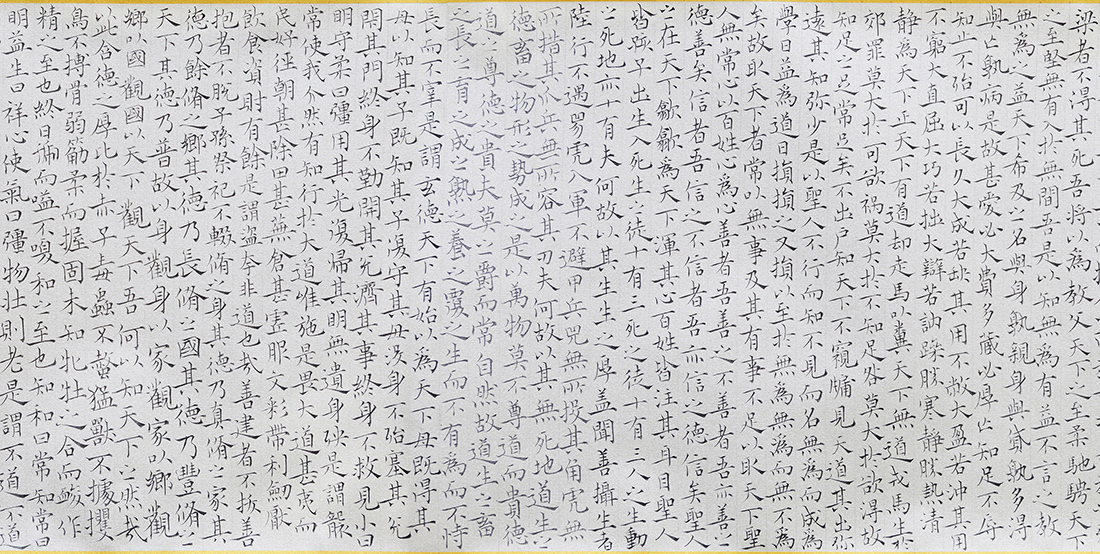 梁者不得其死吾將以為教父天下之至柔馳騁天下
之至堅無有入於無間吾是以知無為有益不言之教
無為之益天下希及之名與身孰親身與貨孰多得
與亡孰病是故甚愛必大費多藏必厚亡知足不辱
知止不殆可以長久大成若缺其用不敝大盈若沖其用
不窮大直若屈大巧若拙大辯若訥躁勝寒靜勝熱清
靜為天下正天下有道却走馬以糞天下無道戎馬生於
郊罪莫大於可欲禍莫大於不知足咎莫大於欲得故
知足之足常足矣不出戶知天下不窺牖見天道其出弥
遠其知弥少是以聖人不行而知不見而名無為而成為
學日益為道日損損之又損以至於無為無為而無不為
矣故取天下者常以無事及其有事不足以取天下聖
人無常心以百姓心為心善者吾善之不善者吾亦善之
德善矣信者吾信之不信者吾亦信之德信矣聖人
之在天下歙歙為天下渾其心百姓皆注其耳目聖人
皆孩子出生入死生之徒十有三死之徒十有三人之生動
之死地亦十有夫何故以其生生之厚盖聞善攝生者
陸行不遇兕虎入軍不避甲兵兕無所投其角虎無
所措其爪兵無所容其刃夫何故以其無死地道生之
德畜之物形之勢成之是以萬物莫不尊道而貴德
道之尊德之貴夫莫之爵而常自然故道生之畜
之長之育之成之熟之養之覆之生而不有為而不恃
長而不宰是謂玄德天下有始以為天下母既得其
母以知其子既知其子復守其母沒身不殆塞其兌
閉其門終身不勤開其兌濟其事終身不救見小曰
明守柔曰彊用其光復歸其明無遺身殃是謂襲
常使我介然有知行於大道惟施是畏大道甚夷而
民好徑朝甚除田甚蕪倉甚虛服文彩帶利劒厭
飲食資財有餘是謂盜夸非道也哉善建者不拔善
抱者不脫子孫祭祀不輟脩之身其德乃真脩之家其
德乃餘脩之鄉其德乃長脩之國其德乃豐脩之
天下其德乃普故以身觀身以家觀家以鄉觀
鄉以國觀國以天下觀天下吾何以知天下之然哉
以此含德之厚比於赤子毒蟲不螫猛獸不據攫
鳥不搏骨弱筋柔而握固未知牝牡之合而作
精之至也終日號而嗌不嗄和之至也知和曰常知常曰
明益生曰祥心使氣曰彊物壯則老是謂不道不道